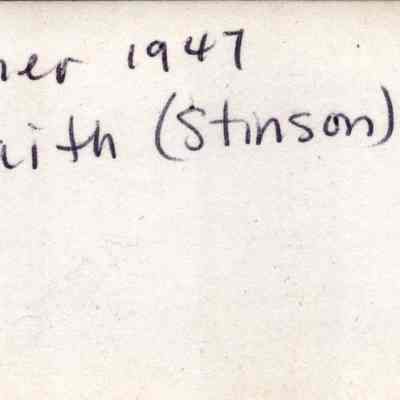 ner 1947
aith (Stinson)